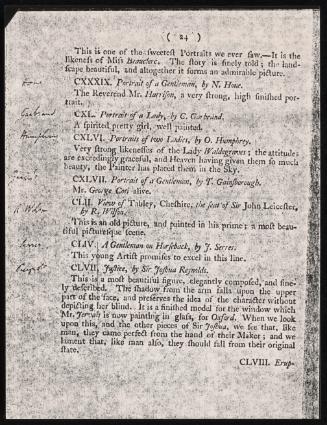 ( 24 )
This is one of the sweetest Portraits we ever saw.—It is the
likeness of Miss Beauclerc. The story is finely told; the land-
scape beautiful, and altogether it forms an admirable picture.
Hone
CXXXIX. Portrait of a Gentleman, by N. Hone.
The Reverend Mr. Harrison, a very strong, high finished por-
trait.
CXL. Portrait of a Lady, by C. Garbrand.
Garbrand
A spirited pretty girl, well painted.
Humphry
CXLVI. Portraits of two Ladies, by O. Humphrey.
Very strong likenesses of the Lady Waldegraves; the attitudes
are exceedingly graceful, and Heaven having given them so much
beauty, the Painter has placed them in the Sky.
CXLVII. Portrait of a Gentleman, by T. Gainsborough.
Mr. George Coyt alive.
CLII. View of Tabley, Cheshire, the seat of Sir John Leicester,
by R. Wilson.
R Wilson
This is an old picture, and painted in his prime; a most beau-
tiful picturesque scene.
Serres
CLIV. A Gentleman on Horseback, by J. Serres.
This young Artist promises to excel in this line.
CLVII. Justice, by Sir Joshua Reynolds.
This is a most beautiful figure, elegantly composed, and fine-
ly described. The shadow from the arm falls upon the upper
part of the face, and preserves the idea of the character without
depicting her blind. It is a finished model for the window which
Mr. Jervais is now painting in glass, for Oxford. When we look
upon this, and the other pieces of Sir Joshua, we see that, like
man, they came perfect from the hand of their Maker; and we
lament that, like man also, they should fall from their original
state.
CLVIII. Erup-